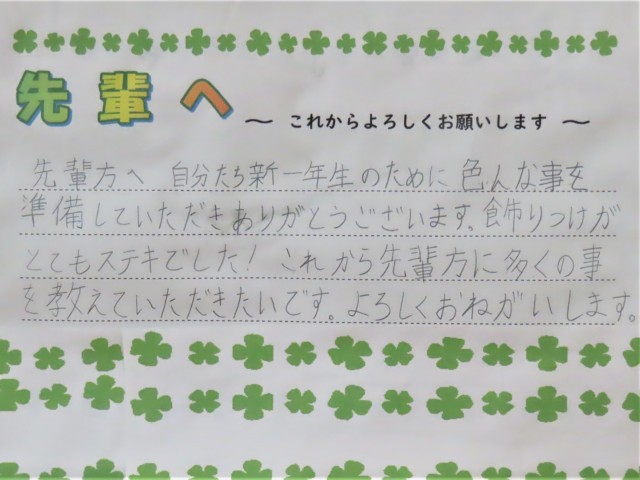 先輩へ
～ これからよろしくお願いします ～
先輩方へ 自分たち新一年生のために色んな事を
準備していただきありがとうございます。飾りつけが
とてもステキでした！これから先輩方に多くの事
を教えていただきたいです。よろしくおねがいします。